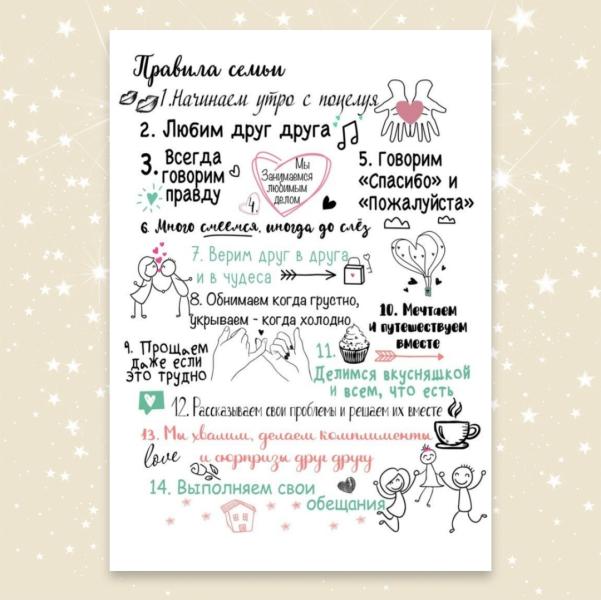 Правила семьи
1. Начинаем утро с поцелуя
2. Любим друг друга
3. Всегда
говорим
правду
4. Мы
Занимаемся
любимым
делом
5. Говорим
«Спасибо» и
«Пожалуйста»
6. Много смеемся, иногда до слёз
7. Верим друг в друга
и в чудеса
8. Обнимаем когда грустно,
укрываем - когда холодно
9. Прощаем
даже если
это трудно
10. Мечтаем
и путешествуем
вместе
11.
Делимся вкусняшкой
и всем, что есть
12. Рассказываем свои проблемы и решаем их вместе
13. Мы хвалим, делаем комплименты
и сюрпризы друг другу
love
14. Выполняем свои
обещания